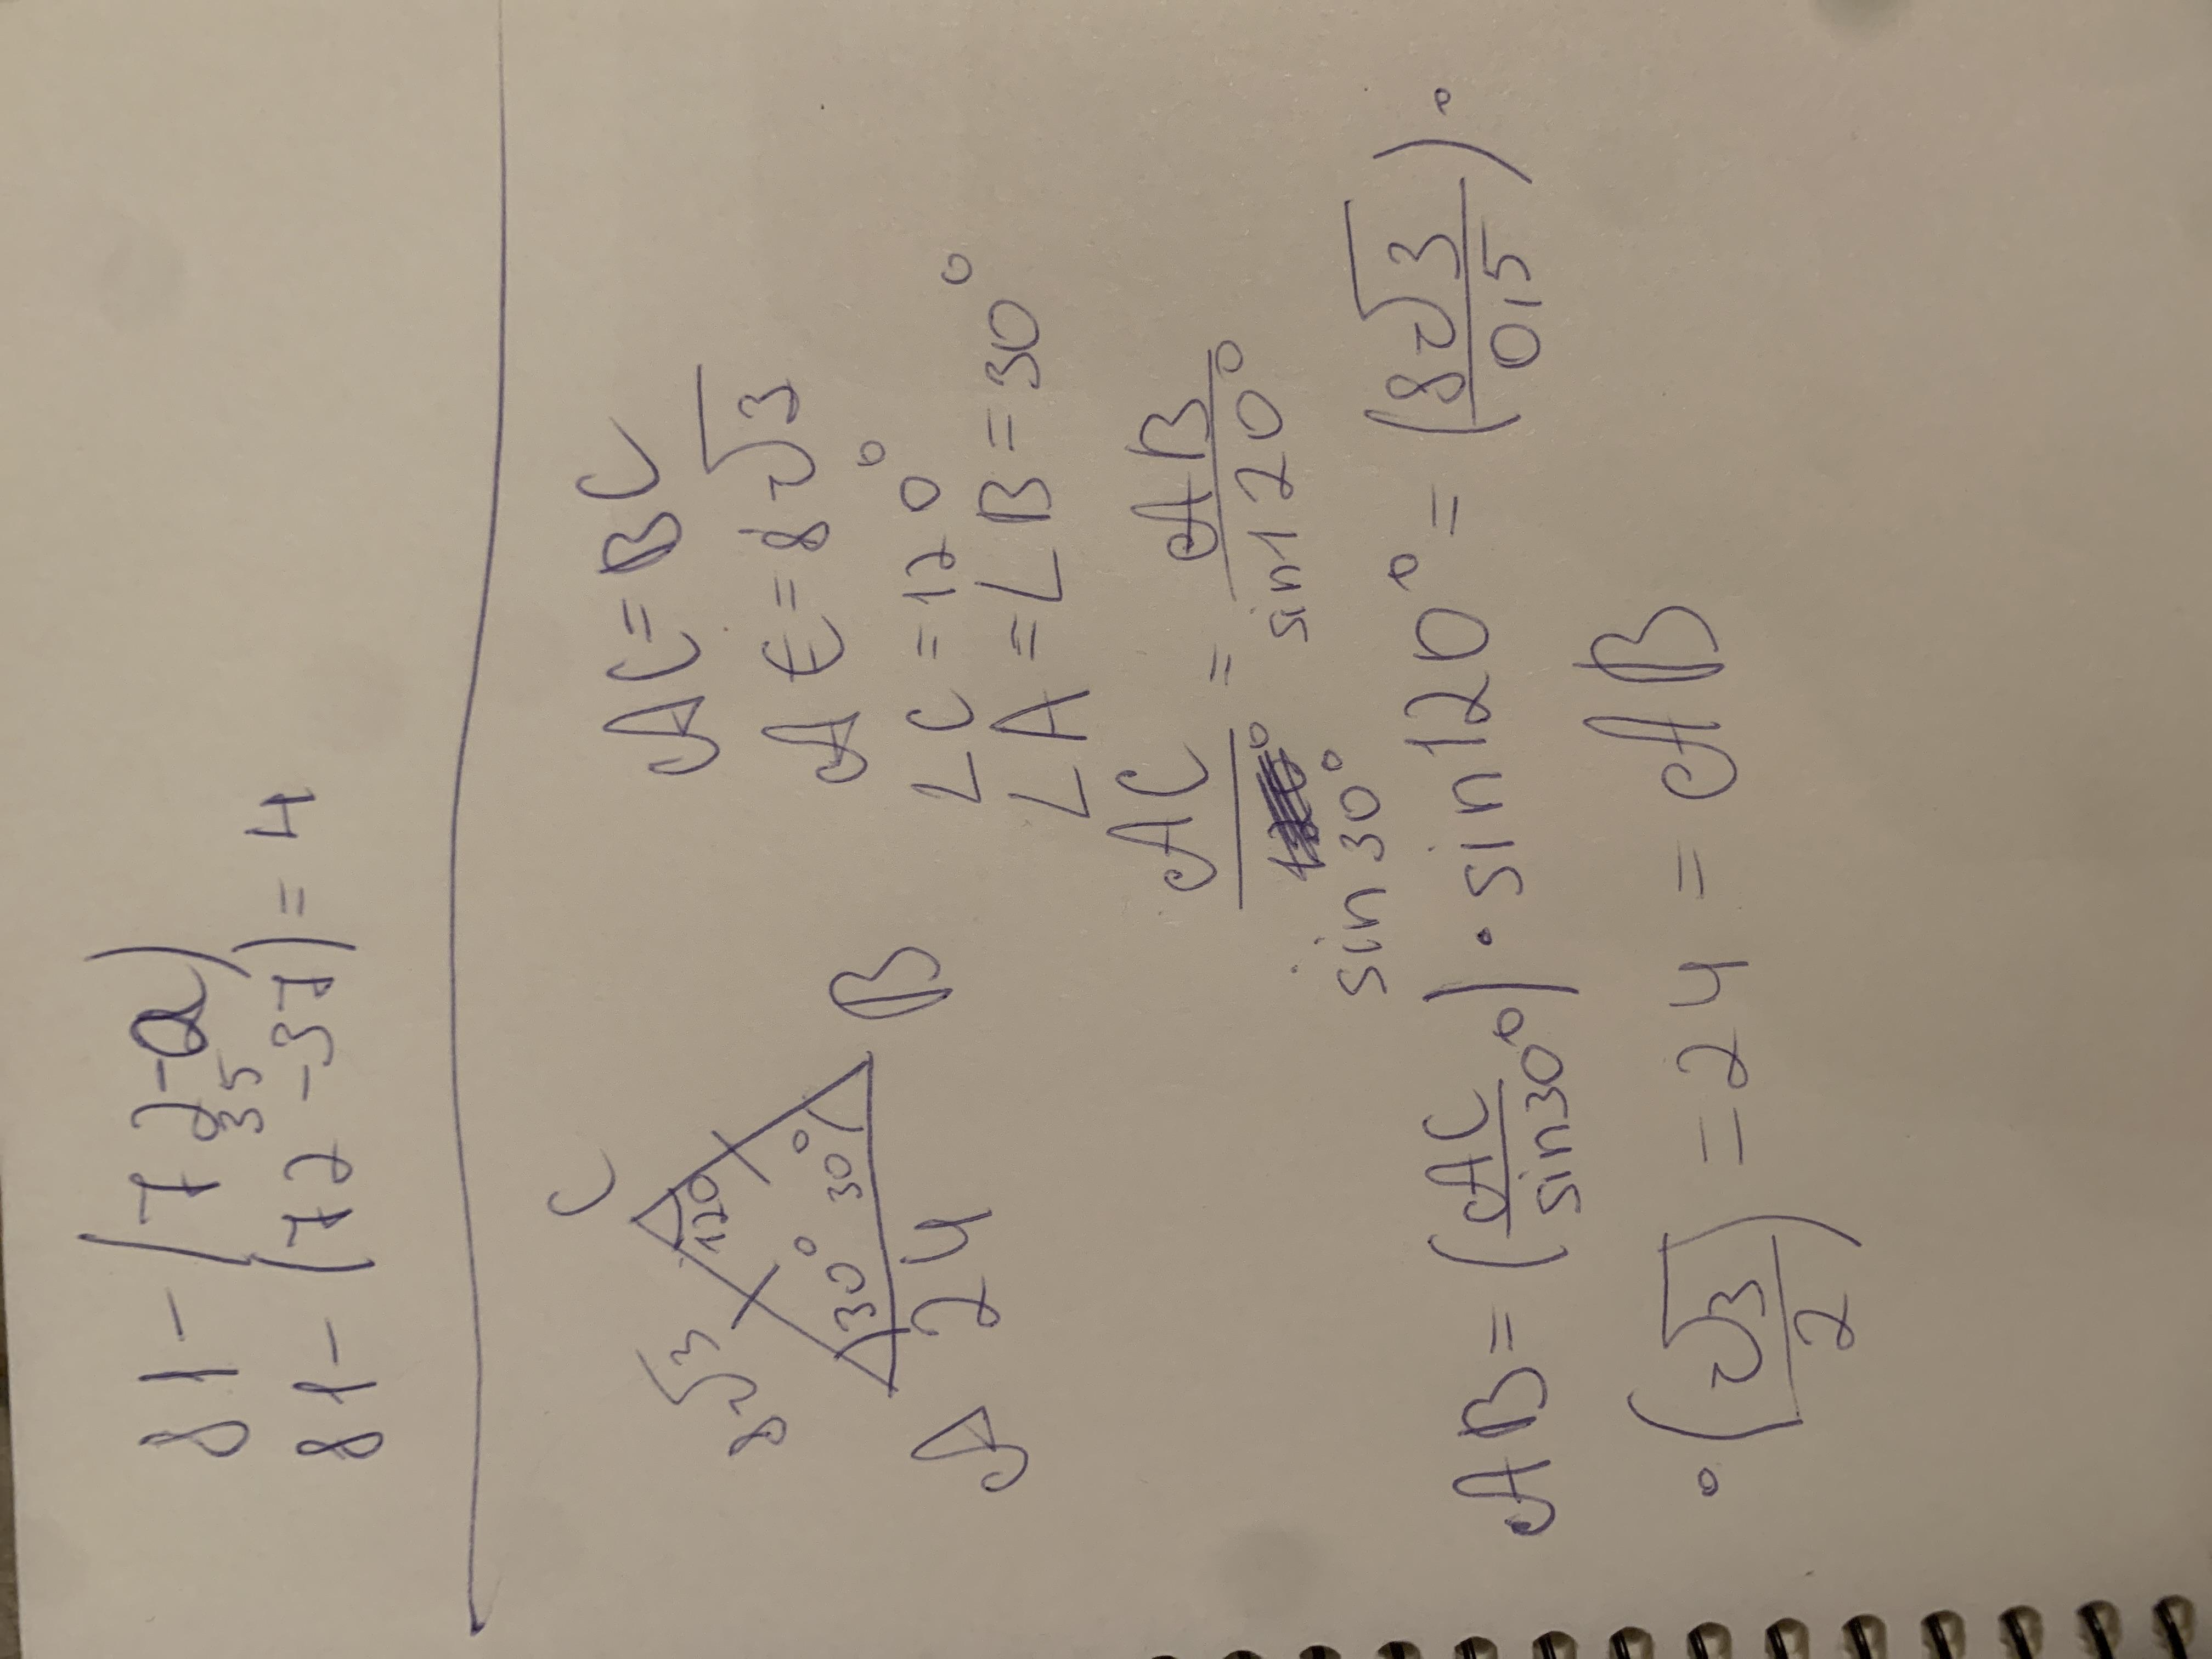 81-(72-a)
35
81-(72-37)=4
C
120
8√3
30° 30°
A 24 B
AC=BC
AC=8√3
∠C=120°
∠A=∠B=30°
AC/sin30° = AB/sin120°
AB=(AC/sin30°)·sin120°=(8√3/0,5)·
·(√3/2)=24=AB